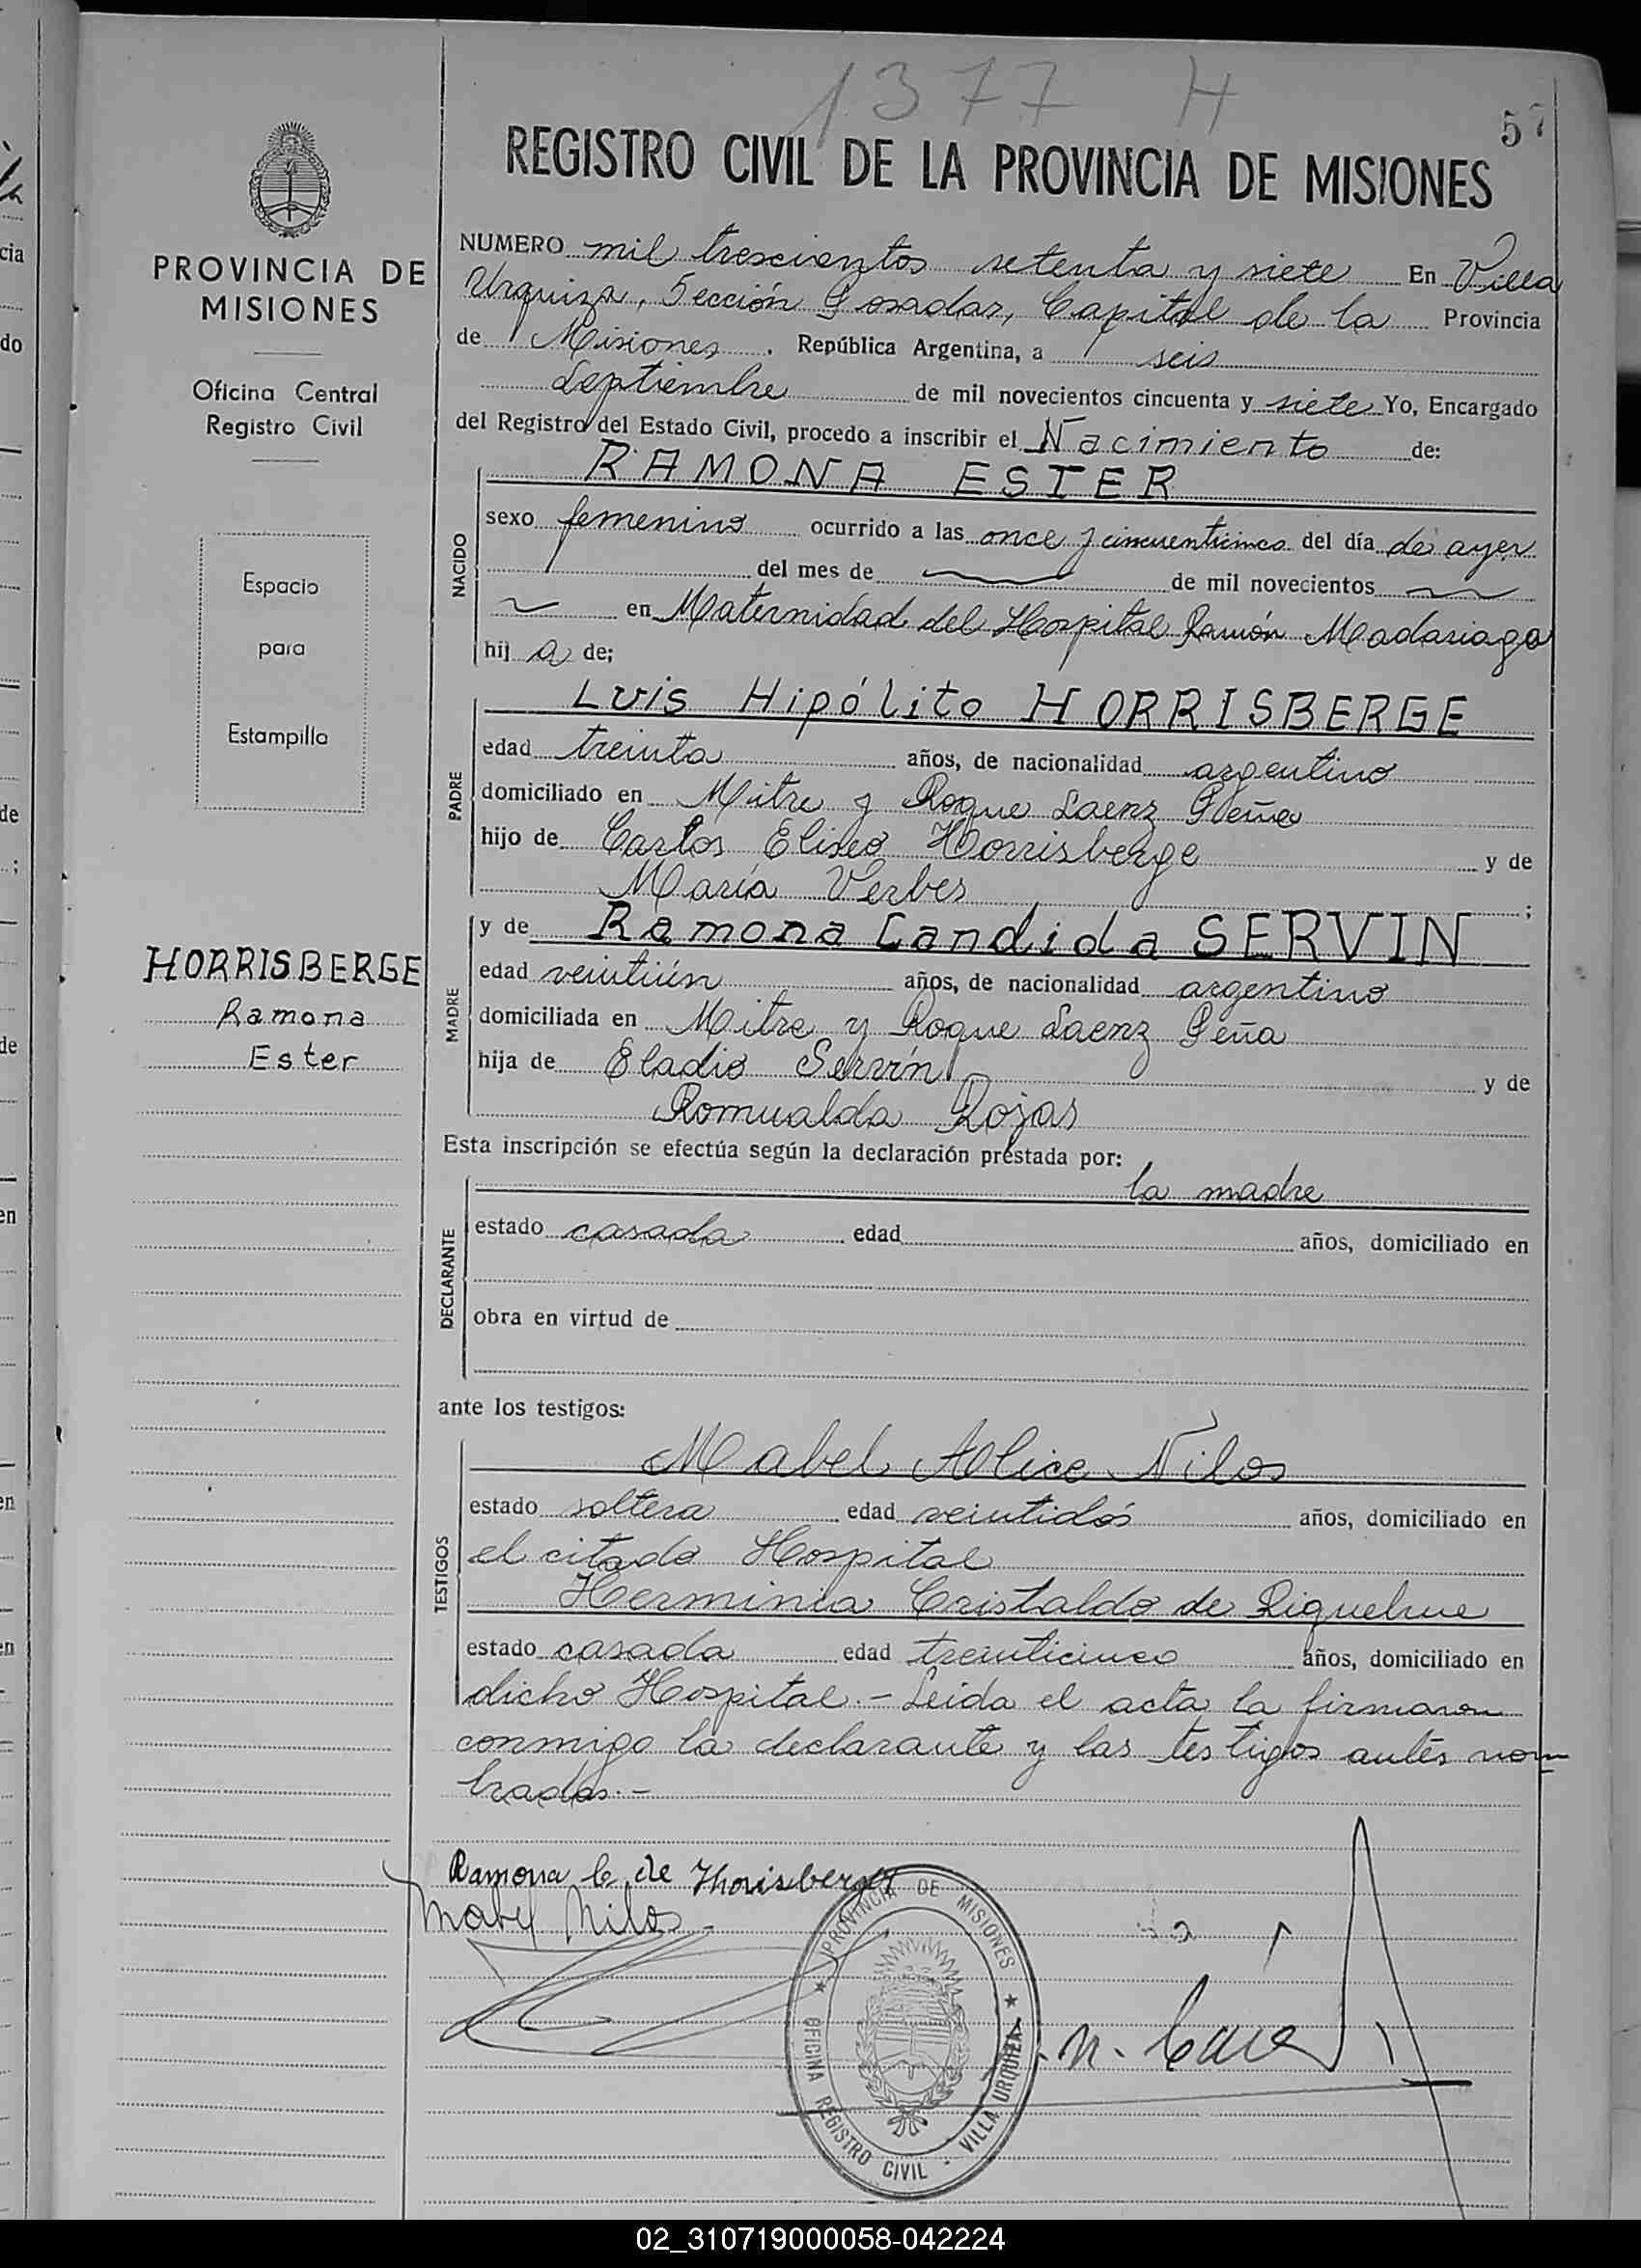 1377 H
57
REGISTRO CIVIL DE LA PROVINCIA DE MISIONES
PROVINCIA DE
MISIONES
Oficina Central
Registro Civil
Espacio
para
Estampilla
HORRISBERGE
Ramona
Ester
NUMERO mil trescientos setenta y siete En Villa
Urquiza, Sección Posadas, Capital de la Provincia
de Misiones. República Argentina, a seis
Septiembre de mil novecientos cincuenta y siete Yo, Encargado
del Registro del Estado Civil, procedo a inscribir el Nacimiento de:
NACIDO
RAMONA ESTER
sexo femenino ocurrido a las once y cincuenticinco del día de ayer
del mes de de mil novecientos
en Maternidad del Hospital Ramón Madariaga
hij a de;
PADRE
Luis Hipólito HORRISBERGE
edad treinta años, de nacionalidad argentino
domiciliado en Mitre y Roque Saenz Peña
hijo de Carlos Eliseo Horrisberge y de
María Verbes ;
MADRE
y de Ramona Candida SERVIN
edad veintiún años, de nacionalidad argentino
domiciliada en Mitre y Roque Saenz Peña
hija de Eladio Servín y de
Romualda Rojas
Esta inscripción se efectúa según la declaración prestada por:
DECLARANTE
la madre
estado casada edad años, domiciliado en
obra en virtud de
ante los testigos:
TESTIGOS
Mabel Alice Nilos
estado soltera edad veintidós años, domiciliado en
el citado Hospital
Herminia Cristaldo de Riquelme
estado casada edad treinticinco años, domiciliado en
dicho Hospital.- Leida el acta la firmaron
conmigo la declarante y las testigos antes nom
bradas.-
Ramona C de Horisberger
Maby Nilos
PROVINCIA DE MISIONES
OFICINA REGISTRO CIVIL - VILLA URQUIZA
02_310719000058-042224